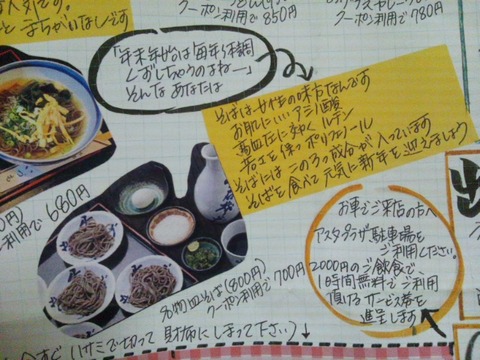 人気です。
と まちがいなしです
クーポン利用で850円
クーポン利用で780円
「年末年始は毎年体調
くずしちゃうのよねー」
そんなあなたは
そばは女性の味方なんです
お肌にいいアミノ酸
高血圧に効く ルチン
若さを保つ ポリフェノール
そばにはこの3つ成分が入っています
そばを食べて元気に新年を迎えましょう
利用で680円
名物皿そば(800円)
クーポン利用で700円
お車でご来店の方へ
アスタプラザ駐車場を
ご利用ください。
2000円のご飲食で、
1時間無料でご利用
頂けるサービス券を
進呈します
ハサミで切って財布にしまって下さい)↓